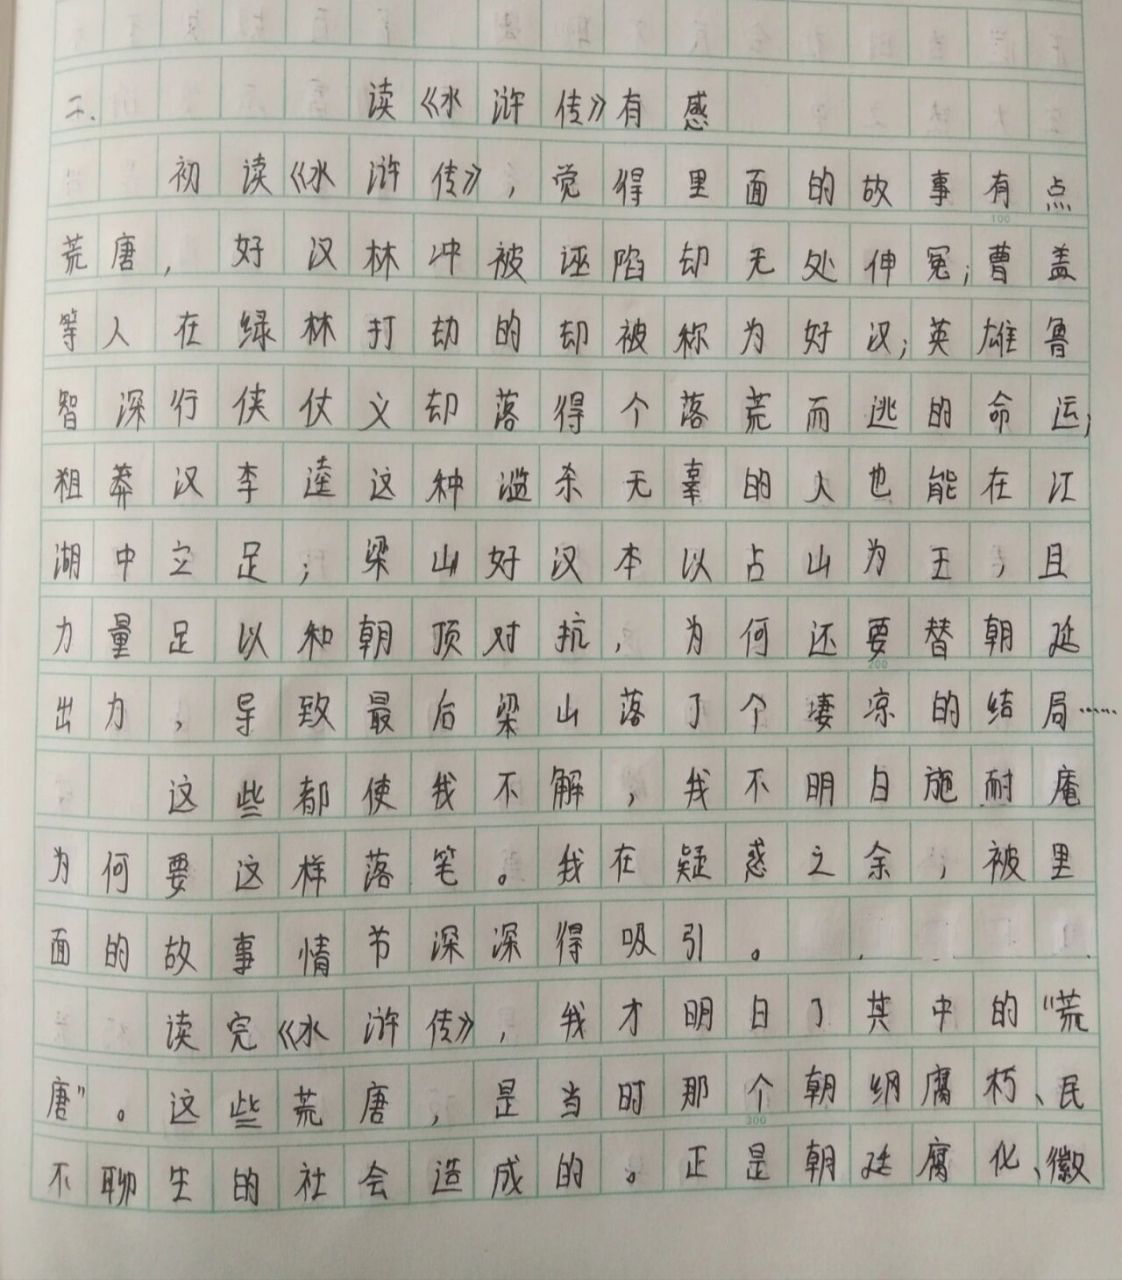 二、读《水浒传》有感
初读《水浒传》，觉得里面的故事有点
荒唐，好汉林冲被诬陷却无处伸冤；曹盖
等人在绿林打劫的却被称为好汉；英雄鲁
智深行侠仗义却落得个落荒而逃的命运；
粗莽汉李逵这种滥杀无辜的人也能在江
湖中立足；梁山好汉本以占山为王，且
力量足以和朝顶对抗，为何还要替朝廷
出力，导致最后梁山落了个凄凉的结局……
这些都使我不解，我不明白施耐庵
为何要这样落笔。我在疑惑之余，被里
面的故事情节深深得吸引。
读完《水浒传》，我才明白了其中的“荒
唐”。这些荒唐，是当时那个朝纲腐朽、民
不聊生的社会造成的。正是朝廷腐化、徽